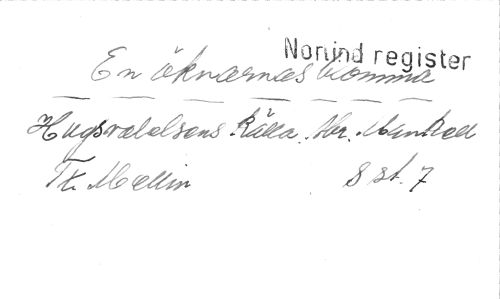 Norind register
En öknarnas blomma
Hugsvalelsens källa. Har. Minkall
Th. Mellin 8 st. 7